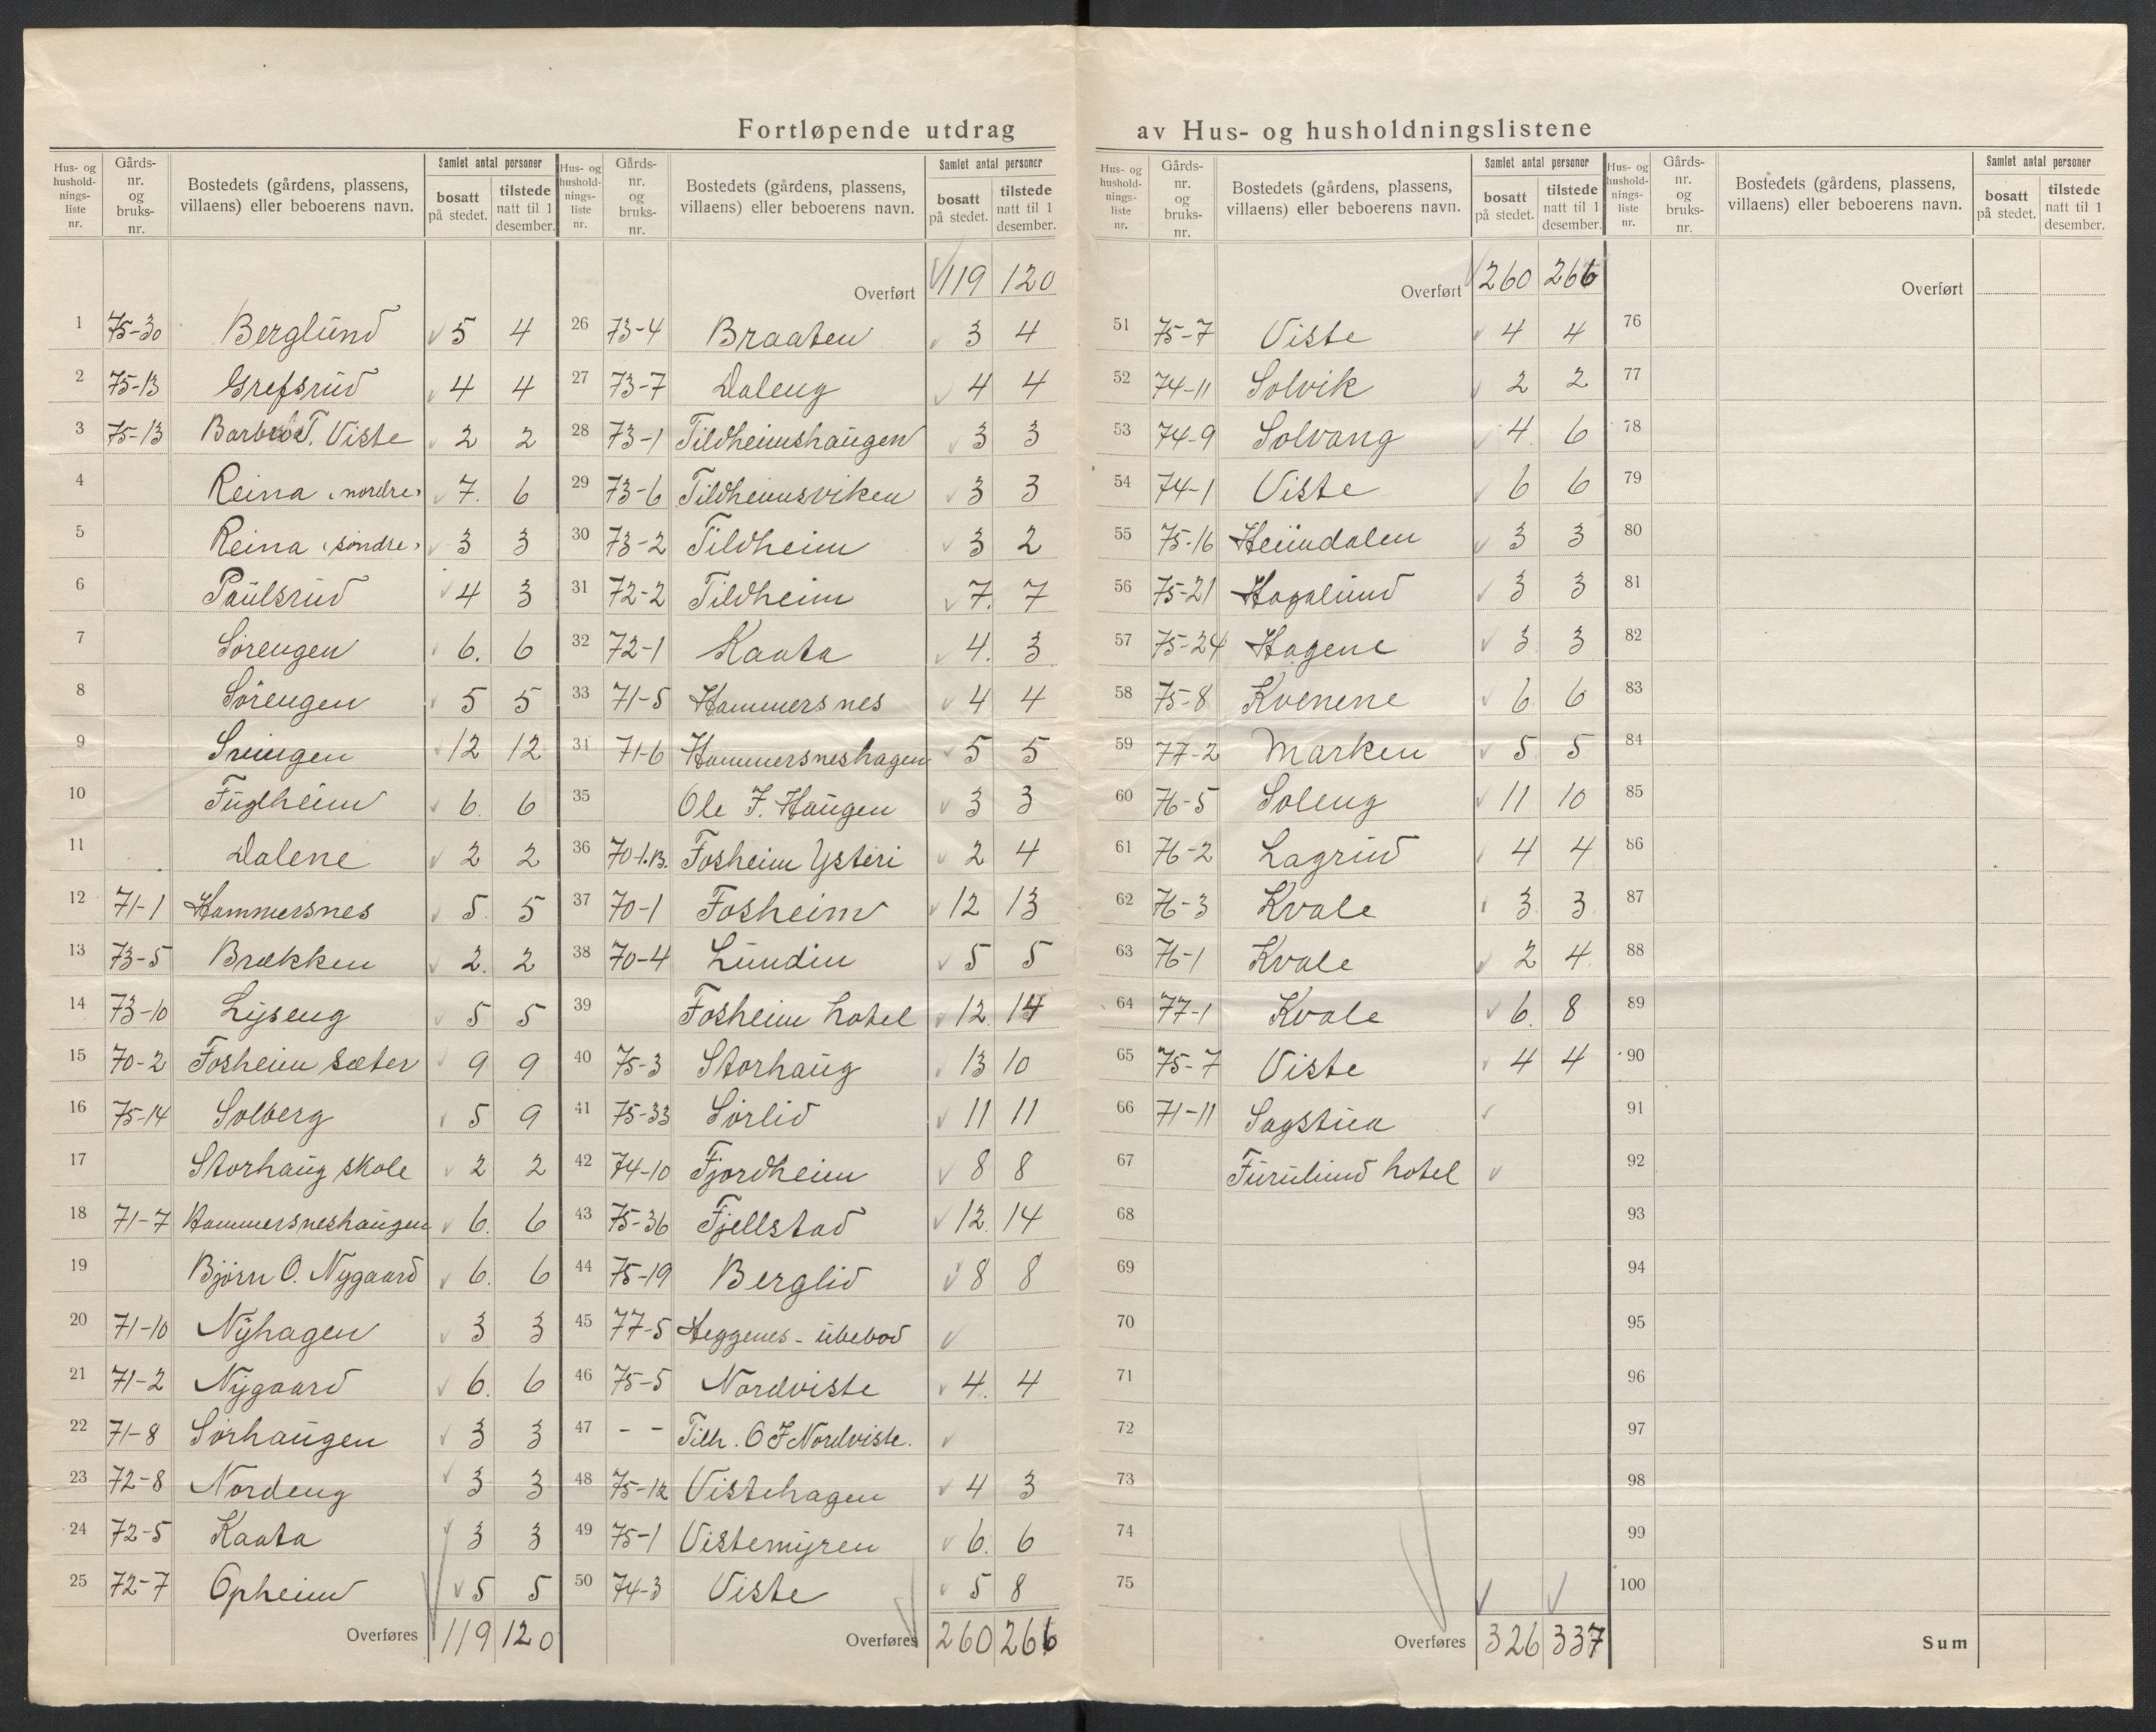 Fortløpende utdrag av Hus- og husholdningslistene
Hus- og hushold- nings- liste nr. | Gårds- nr. og bruks- nr. | Bostedets (gårdens, plassens, villaens) eller beboerens navn. | Samlet antal personer | bosatt på stedet. | tilstede natt til 1 desember.
1 75-30 Berglund 5 4
2 75-13 Grefsrud 4 4
3 75-13 Barbro T. Viste 2 2
4 Reina (nordre) 7. 6
5 Reina (søndre) 3 3
6 Paulsrud 4 3
7 Sørengen 6. 6
8 Sørengen 5 5
9 Svingen 12 12
10 Fuglheim 6. 6
11 Dalene 2 2
12 71-1 Hammersnes 5 5
13 73-5 Brækken 2. 2
14 73-10 Lyseng 5 5
15 70-2 Fosheim sæter 9 9
16 75-14 Solberg 5 9
17 Storhaug skole 2 2
18 71-7 Hammersneshaugen 6. 6
19 Bjørn O. Nygaard 6. 6
20 71-10 Nyhagen 3 3
21 71-2 Nygaard 6. 6
22 71-8 Sørhaugen 3 3
23 72-8 Nordeng 3 3
24 72-5 Kaata 3 3
25 72-7 Opheim 5 5
Overføres 119 120
Hus- og hushold- nings- liste nr. | Gårds- nr. og bruks- nr. | Bostedets (gårdens, plassens, villaens) eller beboerens navn. | Samlet antal personer | bosatt på stedet. | tilstede natt til 1 desember.
Overført 119 120
26 73-4 Braaten 3 4
27 73-7 Daleng 4 4
28 73-1 Tildheimshaugen 3 3
29 73-6 Tildheimsviken 3 3
30 73-2 Tildheim 3 2
31 72-2 Tildheim 7. 7
32 72-1 Kaata 4. 3
33 71-5 Hammersnes 4 4
34 71-6 Hammersneshagen 5 5
35 Ole J. Haugen 3 3
36 70-1.B. Fosheim Ysteri 2 4
37 70-1 Fosheim 12 13
38 70-4 Lundin 5 5
39 Fosheim hotel 12. 14
40 75-3 Storhaug 13 10
41 75-33 Sørlid 11 11
42 74-10 Fjordheim 8 8
43 75-36 Fjellstad 12. 14
44 75-19 Berglid 8 8
45 77-5 Heggenes - ubebod
46 75-5 Nordviste 4. 4
47 - - Tilh. O J Nordviste.
48 75-12 Vistehagen 4 3
49 75-1 Vistemyren 6. 6
50 74-3 Viste 5 8
Overføres 260 266
Hus- og hushold- nings- liste nr. | Gårds- nr. og bruks- nr. | Bostedets (gårdens, plassens, villaens) eller beboerens navn. | Samlet antal personer | bosatt på stedet. | tilstede natt til 1 desember.
Overført 260 266
51 75-7 Viste 4 4
52 74-11 Solvik 2 2
53 74-9 Solvang 4. 6
54 74-1 Viste 6 6
55 75-16 Heimdalen 3 3
56 75-21 Hagalund 3 3
57 75-24 Hagene 3 3
58 75-8 Kvenene 6 6
59 77-2 Marken 5 5
60 76-5 Soleng 11 10
61 76-2 Lagrud 4 4
62 76-3 Kvale 3 3
63 76-1 Kvale 2 4
64 77-1 Kvale 6. 8
65 75-7 Viste 4 4
66 71-11 Sagstua
67 Furulund hotel
68
69
70
71
72
73
74
75
Overføres 326 337
Hus- og hushold- nings- liste nr. | Gårds- nr. og bruks- nr. | Bostedets (gårdens, plassens, villaens) eller beboerens navn. | Samlet antal personer | bosatt på stedet. | tilstede natt til 1 desember.
Overført
76
77
78
79
80
81
82
83
84
85
86
87
88
89
90
91
92
93
94
95
96
97
98
99
100
Sum